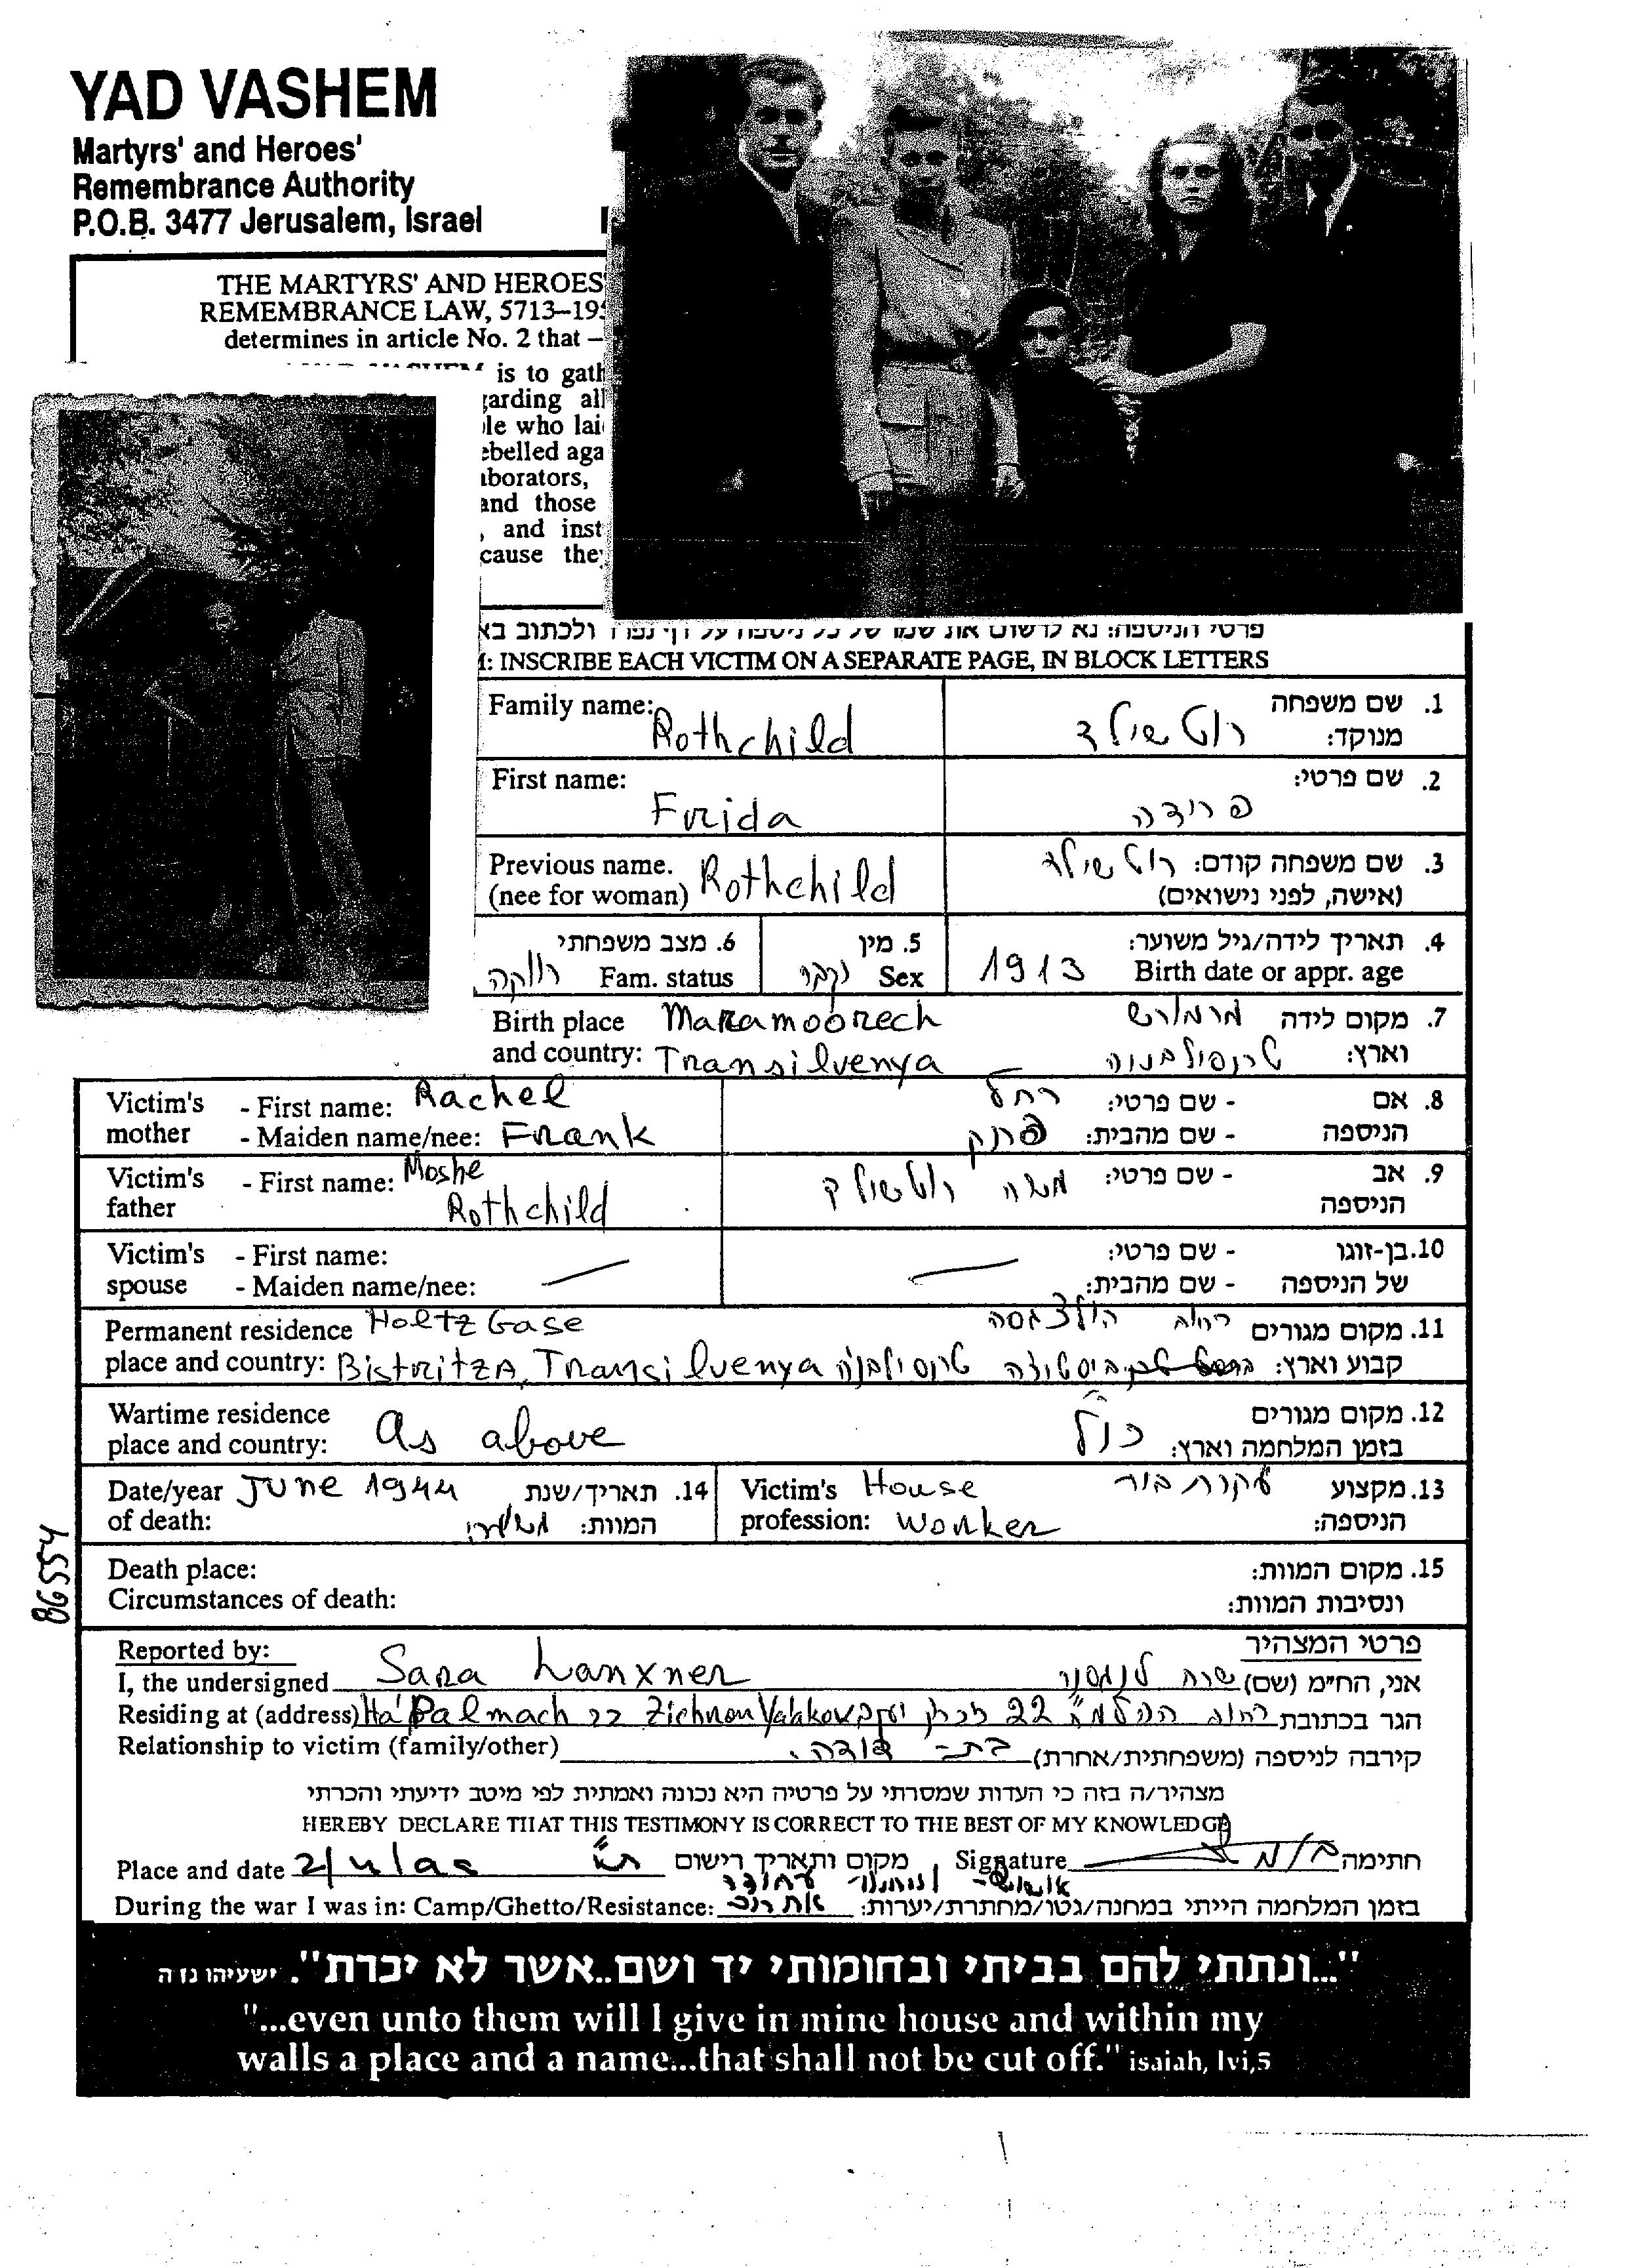 YAD VASHEM
Martyrs' and Heroes'
Remembrance Authority
P.O.B. 3477 Jerusalem, Israel
THE MARTYRS' AND HEROES'
REMEMBRANCE LAW, 5713–195
determines in article No. 2 that –
is to gath
garding all
le who lai
ebelled aga
aborators,
and those
, and inst
cause the
פרטי הניספה: נא לרשום את שמו של כל ניספה על דף נפרד ולכתוב בא
M: INSCRIBE EACH VICTIM ON A SEPARATE PAGE, IN BLOCK LETTERS
Family name: Rothchild
1. שם משפחה מנוקד: רוטשילד
First name: Frida
2. שם פרטי: פרידה
Previous name. (nee for woman) Rothchild
3. שם משפחה קודם: רוטשילד
(אישה, לפני נישואים)
4. תאריך לידה/גיל משוער:
Birth date or appr. age 1913
5. מין Sex נקבה
6. מצב משפחתי Fam. status רווקה
Birth place and country: Maramoorech Transilvenya
7. מקום לידה וארץ: מרמורש טרנסילבניה
Victim's mother - First name: Rachel
- Maiden name/nee: Frank
8. אם הניספה - שם פרטי: רחל
- שם מהבית: פרנק
Victim's father - First name: Moshe Rothchild
9. אב הניספה - שם פרטי: משה רוטשילד
Victim's spouse - First name:
- Maiden name/nee:
10. בן-זוגו של הניספה - שם פרטי:
- שם מהבית:
Permanent residence place and country: Holtz Gase
Bistritza, Transilvenya
11. מקום מגורים קבוע וארץ: רחוב הולצגסה
ביסטריצה טרנסילבניה
Wartime residence place and country: as above
12. מקום מגורים בזמן המלחמה וארץ: כנ"ל
Date/year of death: June 1944
14. תאריך/שנת המוות:
Victim's profession: House Worker
13. מקצוע הניספה: עקרת בית
Death place:
Circumstances of death:
15. מקום המוות:
ונסיבות המוות:
86554
Reported by:
פרטי המצהיר
I, the undersigned Sara Lanxner
אני, הח"מ (שם) שרה לנגסנר
Residing at (address) Ha'Palmach 22 Zichron Yakkov
הגר בכתובת רחוב הפלמ"ח 22 זכרון יעקב
Relationship to victim (family/other)
קירבה לניספה (משפחתית/אחרת) בת-דודה.
מצהיר/ה בזה כי העדות שמסרתי על פרטיה היא נכונה ואמתית לפי מיטב ידיעתי והכרתי
HEREBY DECLARE THAT THIS TESTIMONY IS CORRECT TO THE BEST OF MY KNOWLEDGE
Place and date
מקום ותאריך רישום
Signature
חתימה
During the war I was in: Camp/Ghetto/Resistance:
בזמן המלחמה הייתי במחנה/גטו/מחתרת/יערות:
"...ונתתי להם בביתי ובחומותי יד ושם..אשר לא יכרת". ישעיהו נו ה
"...even unto them will I give in mine house and within my
walls a place and a name...that shall not be cut off." isaiah, lvi,5